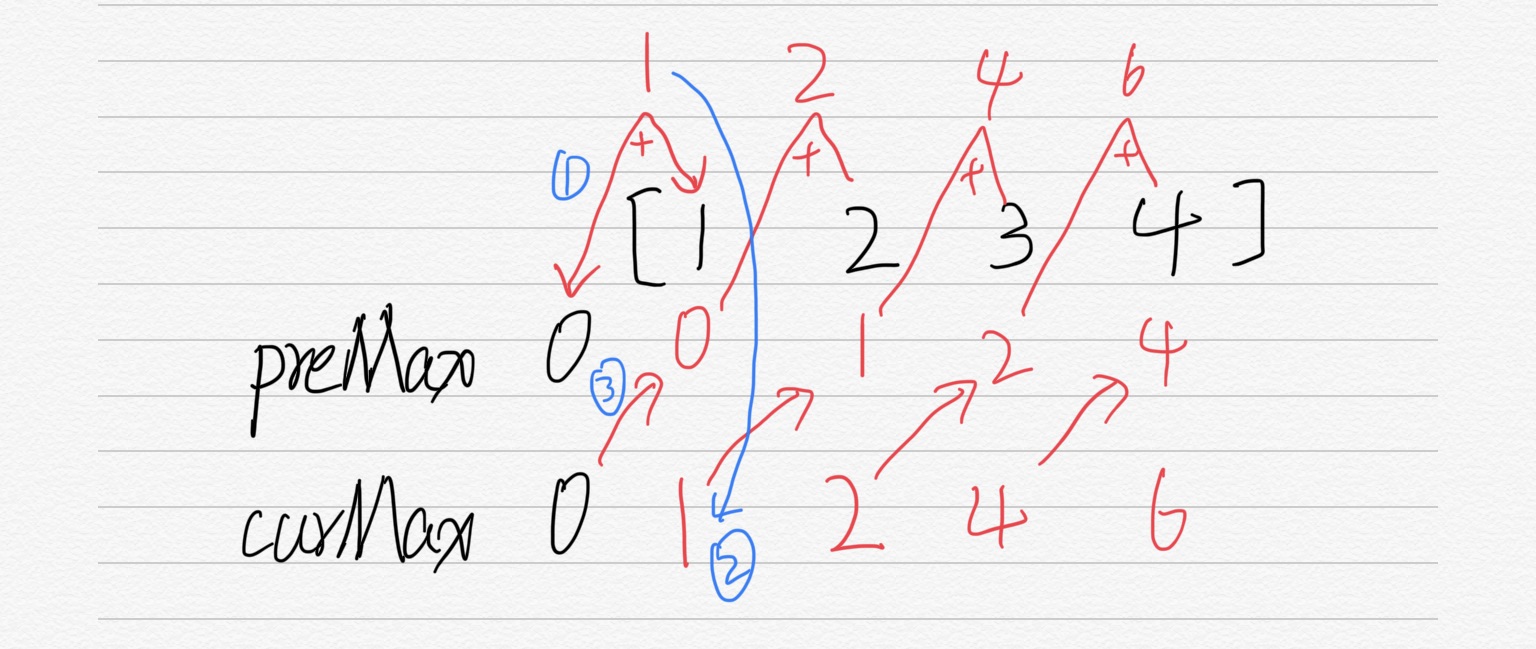 1 2 4 6
+ + + +
①
[1 2 3 4]
preMax 0 0 1 2 4
③
curMax 0 1 2 4 6
②